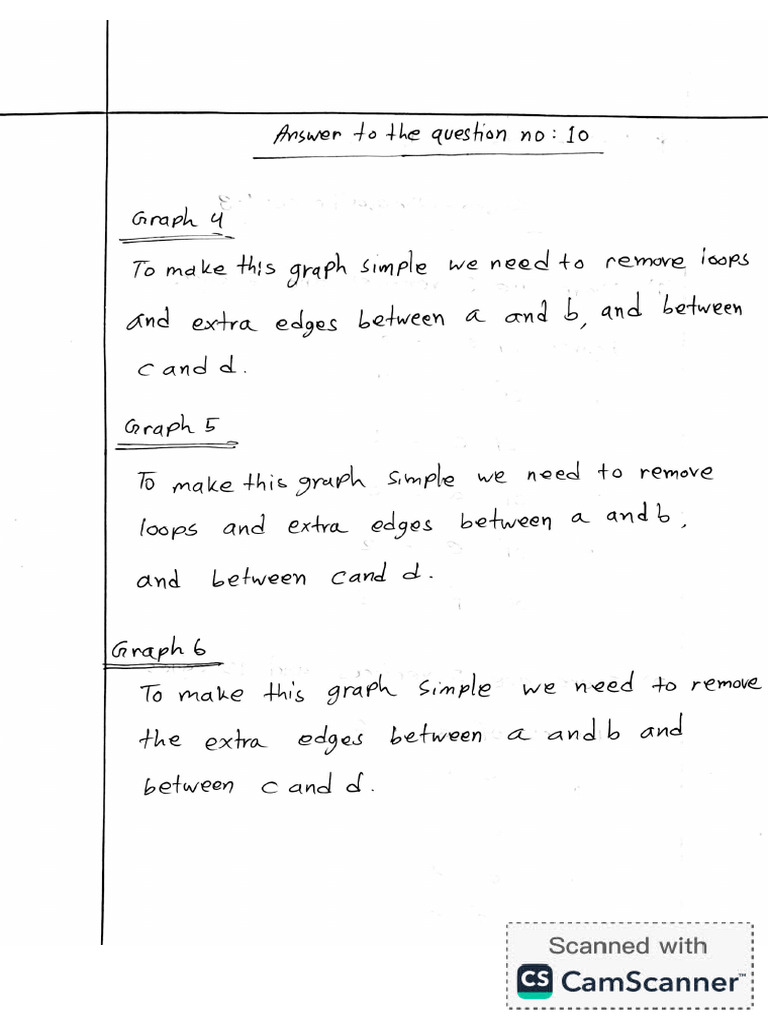 Answer to the question no: 10
Graph 4
To make this graph simple we need to remove loops
and extra edges between a and b, and between
c and d.
Graph 5
To make this graph simple we need to remove
loops and extra edges between a and b,
and between c and d.
Graph 6
To make this graph simple we need to remove
the extra edges between a and b and
between c and d.
Scanned with
CS CamScanner™